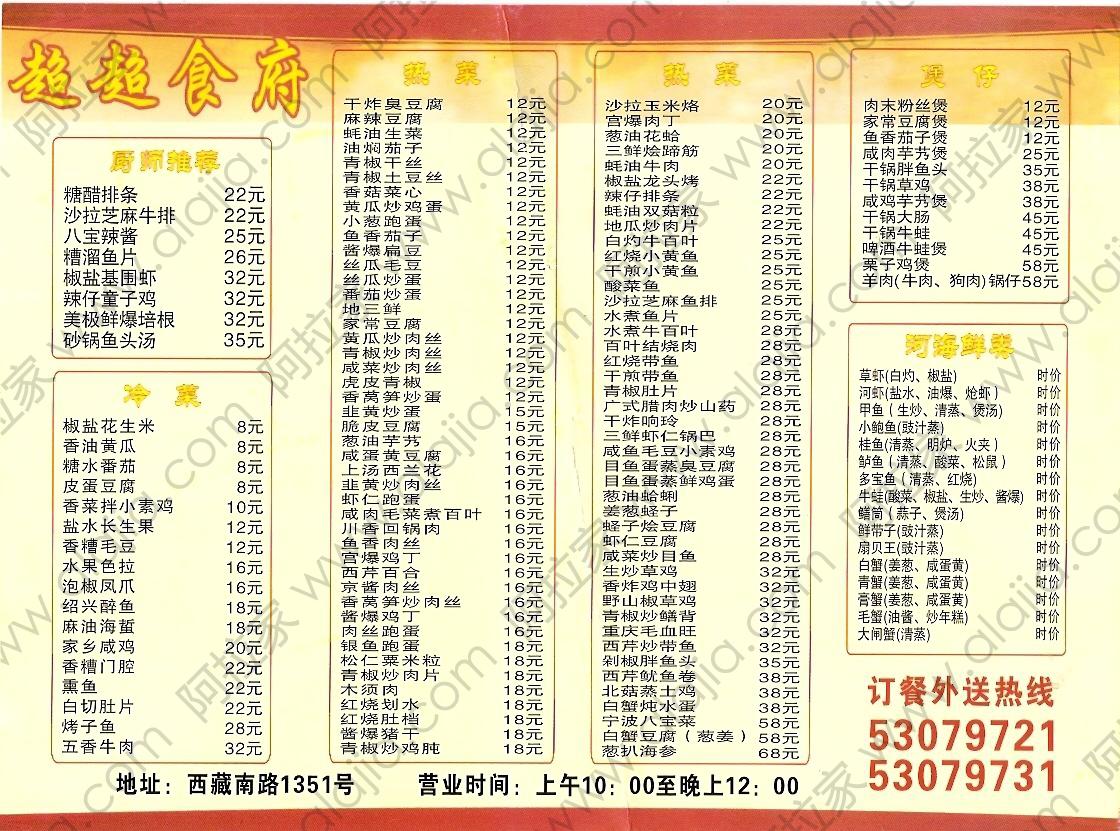 超超食府
厨师推荐
糖醋排条 22元
沙拉芝麻牛排 22元
八宝辣酱 25元
糟溜鱼片 26元
椒盐基围虾 32元
辣仔童子鸡 32元
美极鲜爆培根 32元
砂锅鱼头汤 35元
冷菜
椒盐花生米 8元
香油黄瓜 8元
糖水番茄 8元
皮蛋豆腐 8元
香菜拌小素鸡 10元
盐水长生果 12元
香糟毛豆 12元
水果色拉 16元
泡椒凤爪 16元
绍兴醉鱼 18元
麻油海蜇 18元
家乡咸鸡 20元
香糟门腔 22元
熏鱼 22元
白切肚片 22元
烤子鱼 28元
五香牛肉 32元
热菜
干炸臭豆腐 12元
麻辣豆腐 12元
蚝油生菜 12元
油焖茄子 12元
青椒干丝 12元
青椒土豆丝 12元
香菇菜心 12元
黄瓜炒鸡蛋 12元
小葱跑蛋 12元
鱼香茄子 12元
酱爆扁豆 12元
丝瓜毛豆 12元
丝瓜炒蛋 12元
番茄炒蛋 12元
地三鲜 12元
家常豆腐 12元
黄瓜炒肉丝 12元
青椒炒肉丝 12元
咸菜炒肉丝 12元
虎皮青椒 12元
香莴笋炒蛋 12元
韭黄炒蛋 15元
脆皮豆腐 15元
葱油芋艿 16元
咸蛋黄豆腐 16元
上汤西兰花 16元
韭黄炒肉丝 16元
虾仁跑蛋 16元
咸肉毛菜煮百叶 16元
川香回锅肉 16元
鱼香肉丝 16元
宫爆鸡丁 16元
西芹百合 16元
京酱肉丝 16元
香莴笋炒肉丝 16元
酱爆鸡丁 16元
肉丝跑蛋 16元
银鱼跑蛋 18元
松仁粟米粒 18元
青椒炒肉片 18元
木须肉 18元
红烧划水 18元
红烧肚档 18元
酱爆猪干 18元
青椒炒鸡肫 18元
热菜
沙拉玉米烙 20元
宫爆肉丁 20元
葱油花蛤 20元
三鲜烩蹄筋 20元
蚝油牛肉 20元
椒盐龙头烤 22元
辣仔排条 22元
蚝油双菇粒 22元
地瓜炒肉片 22元
白灼牛百叶 25元
红烧小黄鱼 25元
干煎小黄鱼 25元
酸菜鱼 25元
沙拉芝麻鱼排 25元
水煮鱼片 25元
水煮牛百叶 28元
百叶结烧肉 28元
红烧带鱼 28元
干煎带鱼 28元
青椒肚片 28元
广式腊肉炒山药 28元
干炸响玲 28元
三鲜虾仁锅巴 28元
咸鱼毛豆小素鸡 28元
目鱼蛋蒸臭豆腐 28元
目鱼蛋蒸鲜鸡蛋 28元
葱油蛤蜊 28元
姜葱蛏子 28元
蛏子烩豆腐 28元
虾仁豆腐 28元
咸菜炒目鱼 28元
生炒草鸡 32元
香炸鸡中翅 32元
野山椒草鸡 32元
青椒炒鳝背 32元
重庆毛血旺 32元
西芹炒带鱼 32元
剁椒胖鱼头 35元
西芹鱿鱼卷 38元
北菇蒸土鸡 38元
白蟹炖水蛋 38元
宁波八宝菜 58元
白蟹豆腐（葱姜）58元
葱扒海参 68元
煲仔
肉末粉丝煲 12元
家常豆腐煲 12元
鱼香茄子煲 12元
咸肉芋艿煲 25元
干锅胖鱼头 35元
干锅草鸡 38元
咸鸡芋艿煲 38元
干锅大肠 45元
干锅牛蛙 45元
啤酒牛蛙煲 45元
栗子鸡煲 58元
羊肉(牛肉、狗肉)锅仔58元
河海鲜类
草虾(白灼、椒盐) 时价
河虾(盐水、油爆、炝虾) 时价
甲鱼(生炒、清蒸、煲汤) 时价
小鲍鱼(豉汁蒸) 时价
桂鱼(清蒸、明炉、火夹) 时价
鲈鱼(清蒸、酸菜、松鼠) 时价
多宝鱼(清蒸、红烧) 时价
牛蛙(酸菜、椒盐、生炒、酱爆) 时价
鳝筒(蒜子、煲汤) 时价
鲜带子(豉汁蒸) 时价
扇贝王(豉汁蒸) 时价
白蟹(姜葱、咸蛋黄) 时价
青蟹(姜葱、咸蛋黄) 时价
膏蟹(姜葱、咸蛋黄) 时价
毛蟹(油酱、炒年糕) 时价
大闸蟹(清蒸) 时价
订餐外送热线
53079721
53079731
地址：西藏南路1351号 营业时间：上午10：00至晚上12：00
阿拉家 www.alajia.com